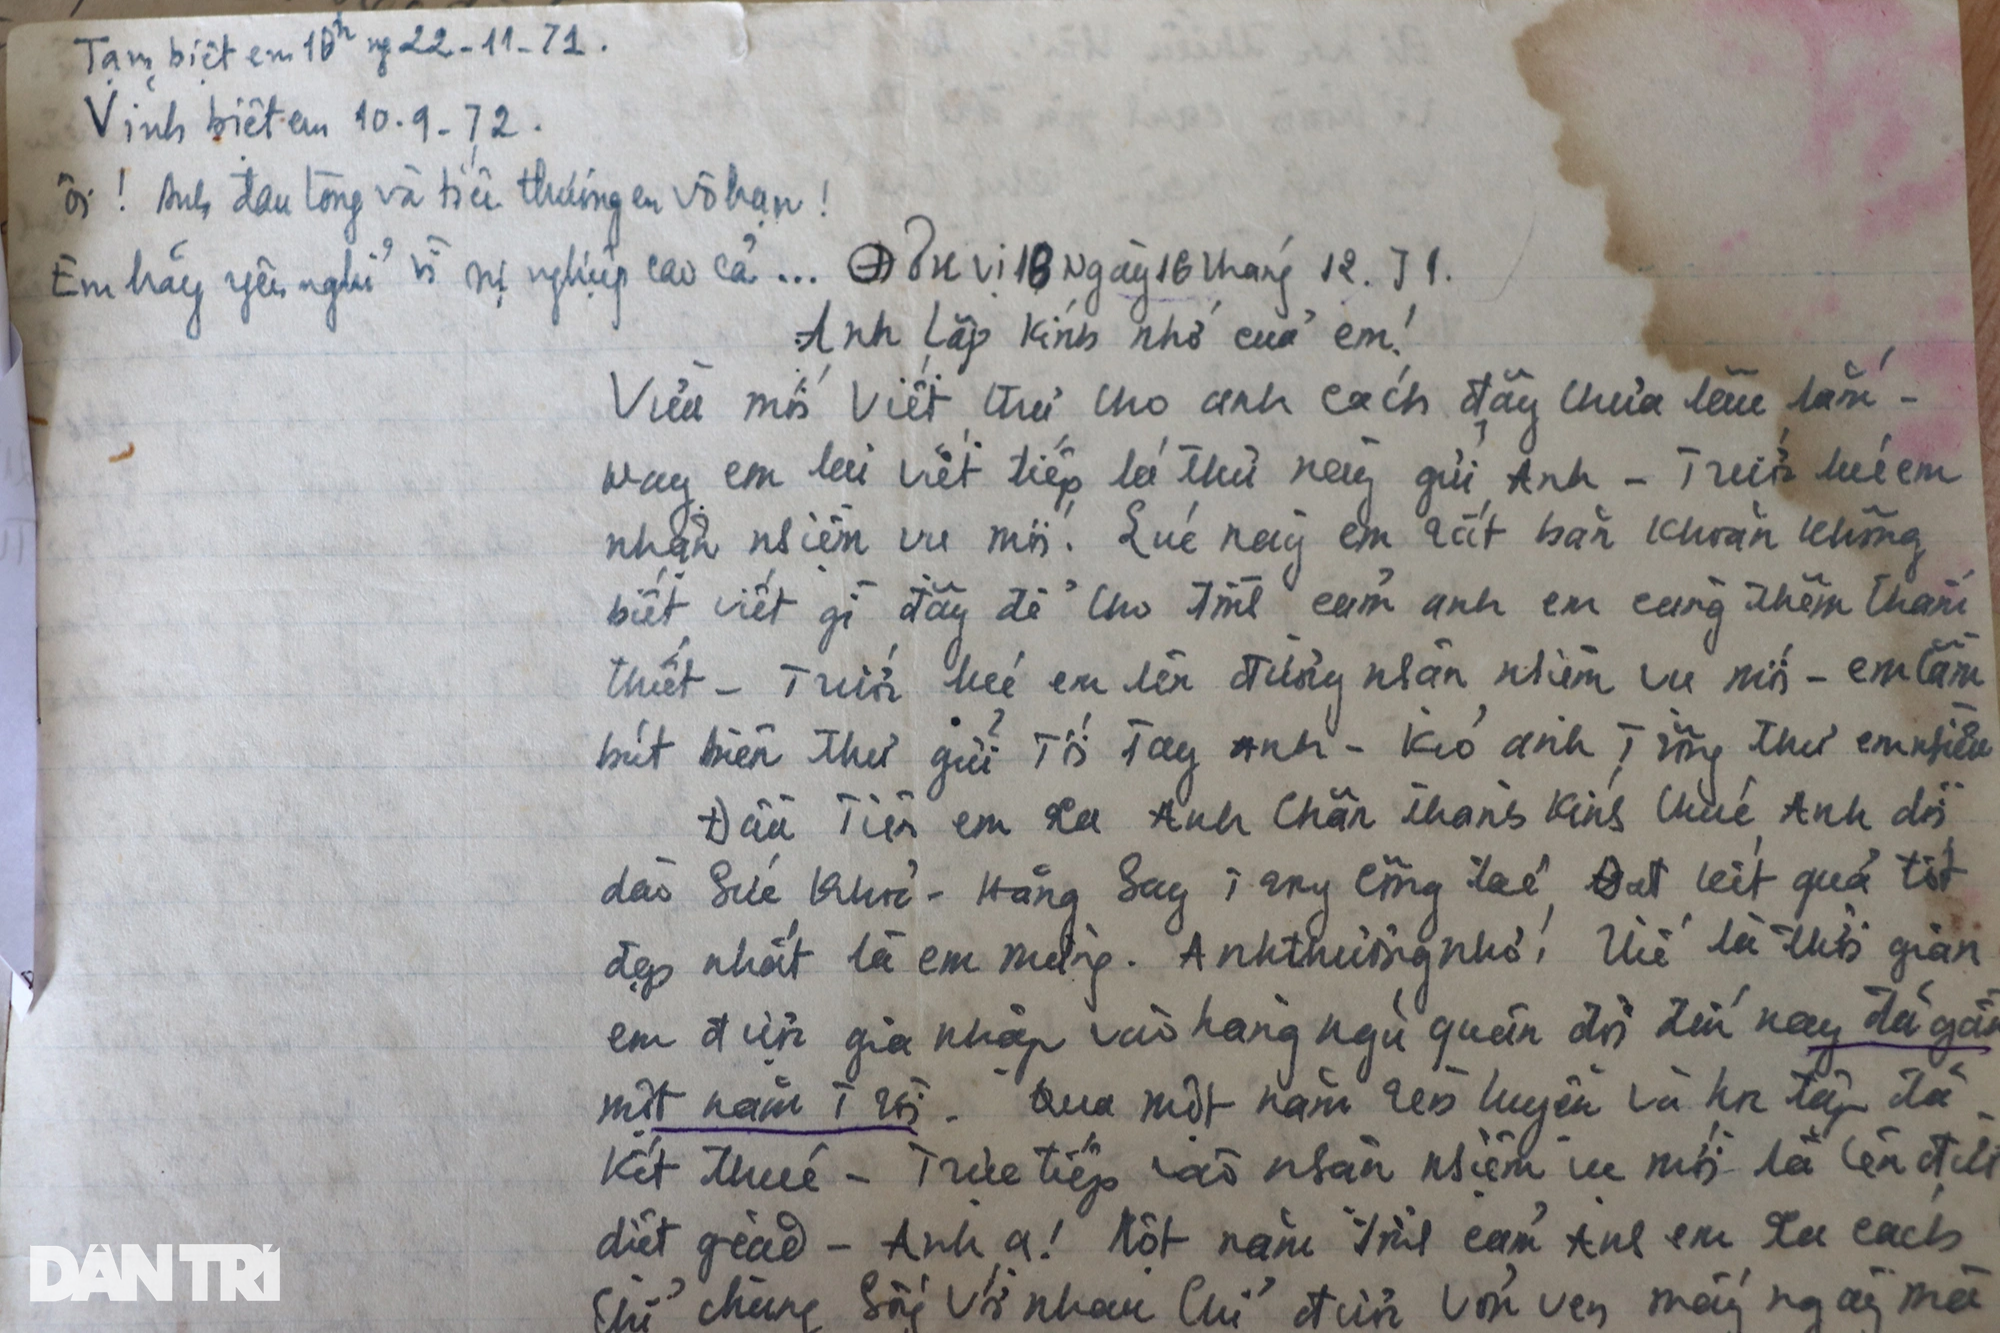 Tạm biệt em 10h ng 22-11-71.
Vĩnh biệt em 10.9-72.
ôi! Anh đau lòng và tiếc thương em vô hạn!
Em hãy yên nghỉ vì sự nghiệp cao cả...
Đơn vị 18 Ngày 16 tháng 12.71.
Anh Lập kính nhớ của em!
Vừa mới viết thư cho anh cách đây chưa lâu lắm -
nay em lại viết tiếp lá thư này gửi Anh - Trước lúc em
nhận nhiệm vụ mới. Lúc này em rất băn khoăn không
biết viết gì đây để cho tình cảm anh em càng thêm thắm
thiết - Trước lúc em lên đường nhận nhiệm vụ mới - em cầm
bút biên thư gửi tới tay Anh - anh thư em nhiều
Đầu tiên em xa Anh chân thành kính chúc Anh dồi
dào sức khoẻ - Hăng say trong công tác Đạt kết quả tốt
đẹp nhất là em mừng. Anh thương nhớ! Thế là thời gian
em được gia nhập vào hàng ngũ quân đội đến nay đã gần
một năm trời - Qua một năm rèn luyện và học tập đã
kết thúc - Trực tiếp vào nhận nhiệm vụ mới là lên đường
diệt giặc - Anh ạ! Một năm tình cảm Anh em xa cách
chúng sống với nhau chỉ được vỏn vẹn mấy ngày mà
DÂN TRÍ